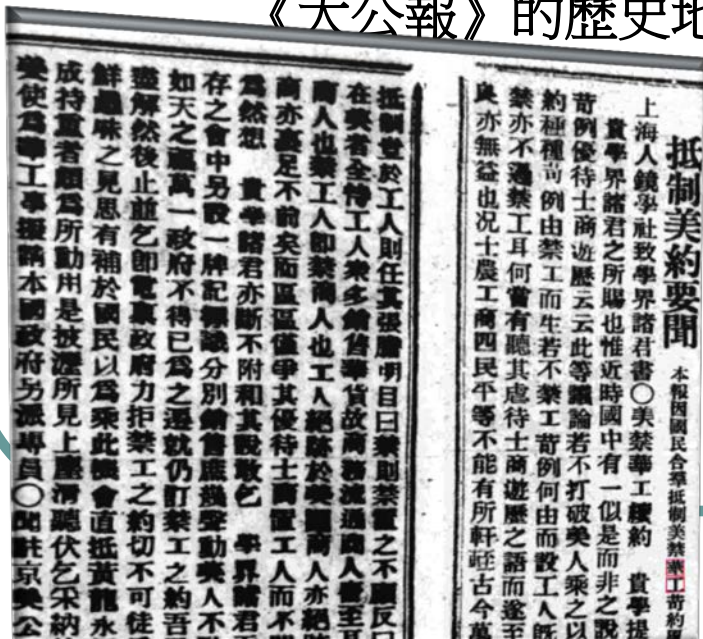 《大公報》的歷史地
抵制美約要聞 本報因國民合羣抵制美禁華工苛約
上海人鏡學社致學界諸君書○美禁華工續約 貴學提
貴學界諸君之所賜也惟近時國中有一似是而非之說
苛例優待士商遊歷云云此等讕論若不打破美人乘之以
約種種苛例由禁工而生若不禁工苛例何由而設工人既
禁亦不過禁工耳何嘗有聽其虐待士商遊歷之語而遂至
亦無益也况士農工商四民平等不能有所軒輊古今萬
抵制豈於工人則任其張膽明目曰禁則禁置之不顧反曰
在美者全恃工人衆多銷售華貨故商務流通商人
商人也禁工人即禁商人也工人絕跡於美國商人亦絕跡
商亦裹足不前矣而區區僅爭其優待士商置工人而不
爲然想 貴學諸君亦斷不附和其說敢乞 學界諸君
存之會中另設一牌記議分別銷售庶幾聲動美人不
如天之福萬一政府不得已爲之遷就仍訂禁工之約吾
盡解然後止並乞即電稟政府力拒禁工之約切不可徒
鮮味之見思有補於國民以爲乘此機會直抵黃龍永
成持重者頗爲所動用是披瀝所見上塵清聽伏乞采納
美使爲華工事請本國政府另派專員○聞駐京美公